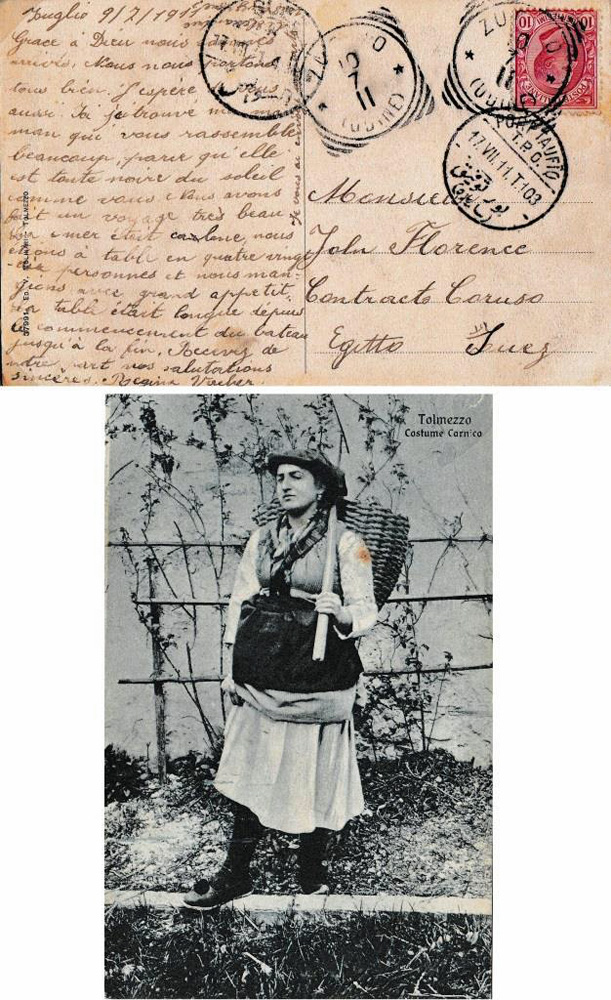 Luglio 9/7/191
Grace à Dieu nous
arrivé. Nous nous portons
tous bien. J'espère vous
aussi. Ici je trouve
man qui vous rassemble
beaucoup, parce qu'elle
est toute noire du soleil
comme vous. Nous avons
fait un voyage très beau
mer était calme, nous
étions à table en quatre vingt
personnes et nous man-
gions avec grand appetit.
table était longue dépuis
le commencement du bateau
jusqu'à la fin. Recevez de
notre part nos salutations
sincères. Regina
Je vous
TOLMEZZO
10
7
11
(UDINE)
ZU
11
(UDINE)
10
10
PORT TAUFIQ
T.P.O.
17.VII.11.T.103
بور توفيق
Monsieur
John Florence
Contracto Caruso
Egitto Suez
Tolmezzo
Costume Carnico